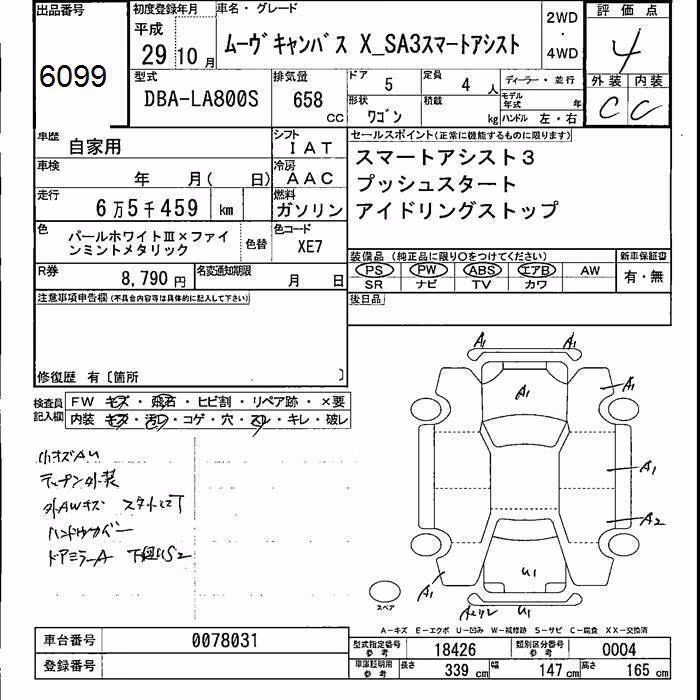 出品番号
6099
初度登録年月
平成
29年10月
車名・グレード
ムーヴキャンバス X_SA3スマートアシスト
2WD
・
4WD
評価点
4
外装 内装
C C
型式
DBA-LA800S
排気量
658
CC
ドア
5
定員
4人
形状
ワゴン
積載
kg
ディーラー・並行
モデル年式 年
ハンドル 左・右
車歴
自家用
シフト
IAT
車検
年 月( 日)
冷房
AAC
走行
6万5千459 km
燃料
ガソリン
色
パールホワイトⅢ×ファイ
ンミントメタリック
色替
色コード
XE7
R券
8,790円
名変通知期限
月 日
セールスポイント(正常に機能するものに限ります)
スマートアシスト3
プッシュスタート
アイドリングストップ
装備品(純正品に限り〇をつけてください)
PS PW ABS エアB AW
SR ナビ TV カワ
新車保証書
有・無
後日品
注意事項申告欄(不具合内容等は具体的に記入して下さい)
修復歴 有〔箇所 〕
検査員
記入欄
FW キズ・飛石・ヒビ割・リペア跡・×要
内装 キズ・汚レ・コゲ・穴・スレ・キレ・破レ
小キズAU
外AWキズ
ハンドルカバー
ドアミラーA
A1 A1
A1
A1
A1
A2
A1
U1
U1
スペア
A-キズ E-エクボ U-凹み W-補修跡 S-サビ C-腐食 XX-交換済
車台番号
0078031
登録番号
型式指定番号
参考
18426
類別区分番号
参考
0004
車庫証明用
参考
長さ 339cm 幅 147cm 高さ 165cm